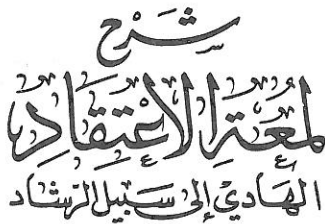 شرح
لمعة الاعتقاد
الهادي إلى سبيل الرشاد